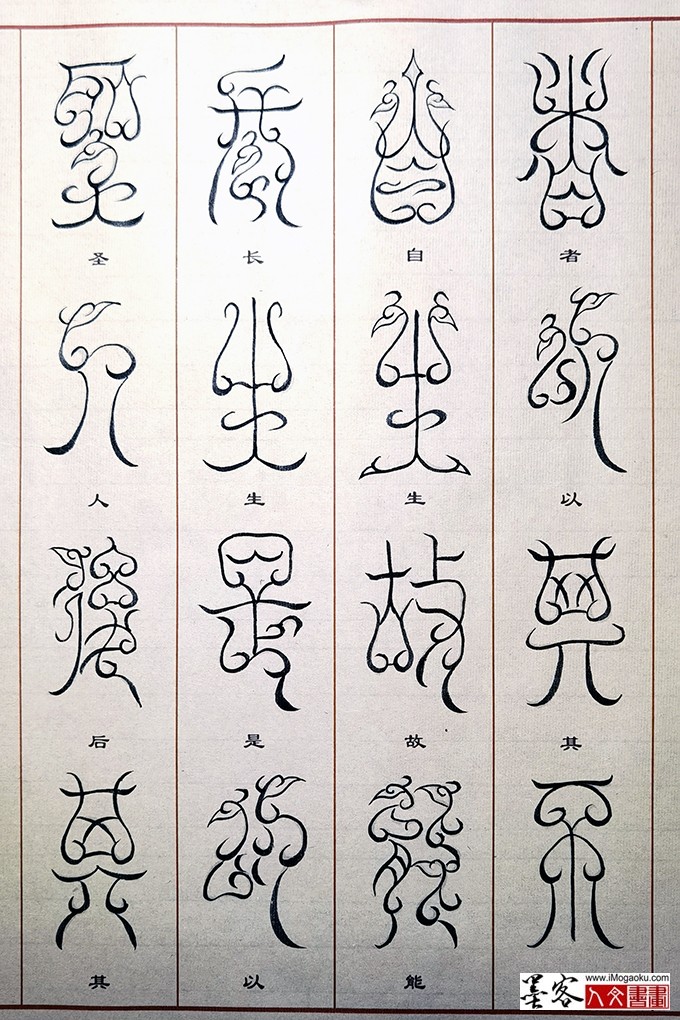 者以其不
自生故能
长生是以
圣人后其
墨客
www.iMogaoku.com
人文書畫